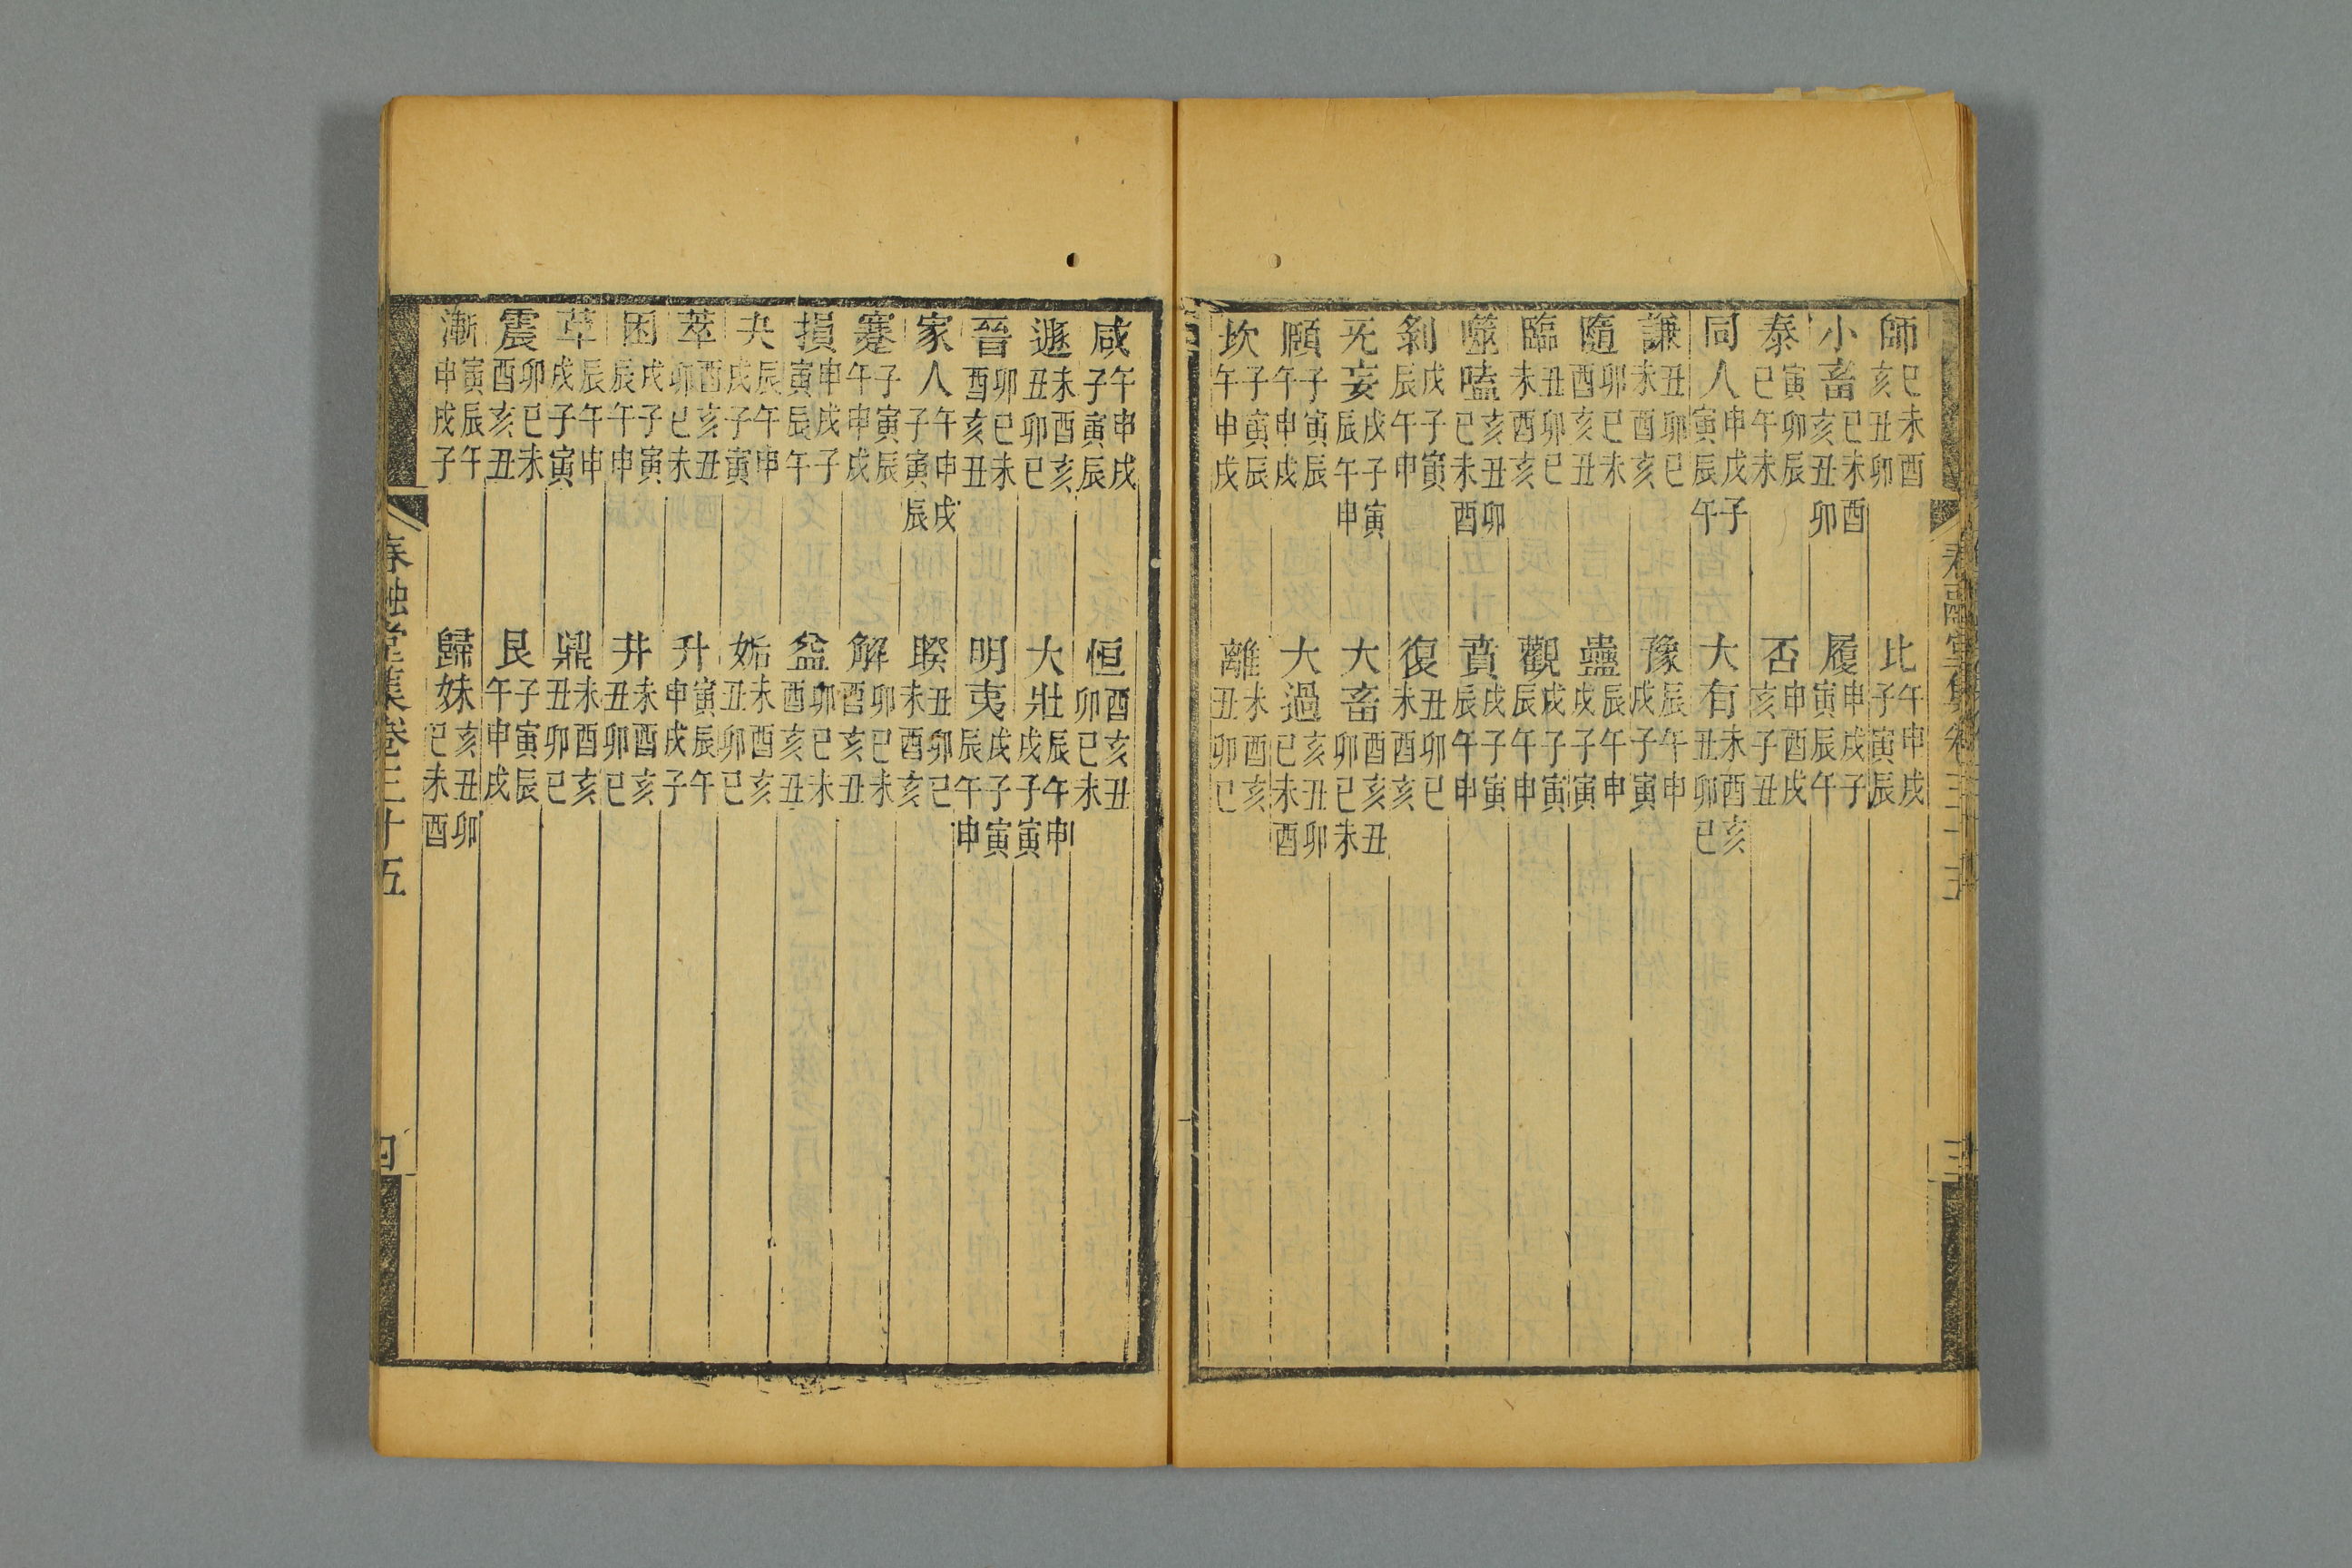 春融堂集卷三十五 三
師巳未酉亥丑卯 比午申戌子寅辰
小畜巳未酉亥丑卯 履申戌子寅辰午
泰寅卯辰巳午未 否申酉戌亥子丑
同人申戌子寅辰午 大有未酉亥丑卯巳
謙丑卯巳未酉亥 豫辰午申戌子寅
隨卯巳未酉亥丑 蠱辰午申戌子寅
臨丑卯巳未酉亥 觀戌子寅辰午申
噬嗑亥丑卯巳未酉 賁戌子寅辰午申
剝戌子寅辰午申 復丑卯巳未酉亥
无妄戌子寅辰午申 大畜酉亥丑卯巳未
頤子寅辰午申戌 大過亥丑卯巳未酉
坎子寅辰午申戌 離未酉亥丑卯巳
咸午申戌子寅辰 恒酉亥丑卯巳未
遯未酉亥丑卯巳 大壯辰午申戌子寅
晉卯巳未酉亥丑 明夷戌子寅辰午申
家人午申戌子寅辰 睽丑卯巳未酉亥
蹇子寅辰午申戌 解卯巳未酉亥丑
損申戌子寅辰午 益卯巳未酉亥丑
夬辰午申戌子寅 姤未酉亥丑卯巳
萃酉亥丑卯巳未 升寅辰午申戌子
困戌子寅辰午申 井未酉亥丑卯巳
革辰午申戌子寅 鼎未酉亥丑卯巳
震卯巳未酉亥丑 艮子寅辰午申戌
漸寅辰午申戌子 歸妹亥丑卯巳未酉
春融堂集卷三十五 四